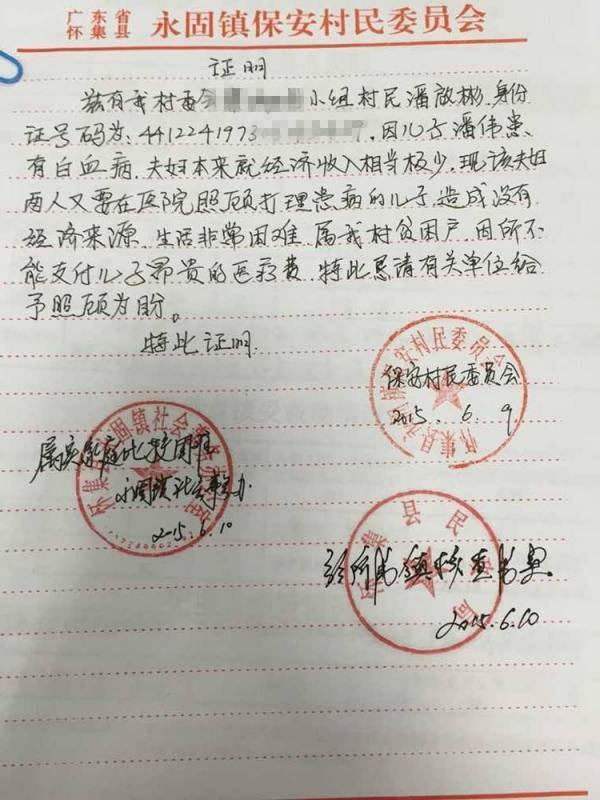 广东省
怀集县 永固镇保安村民委员会
证明
兹有我村委会 小组村民潘啟彬.身份
证号码为:4412241973 ,因儿子潘伟患、
有白血病,夫妇本来就经济收入相当极少.现该夫妇
两人又要在医院照顾打理患病的儿子.造成没有
经济来源.生活非常困难.属我村贫困户,因所不
能支付儿子昂贵的医疗费.特此恳请有关单位给
予照顾为盼。
特此证明.
保安村民委员会
2015.6.9
怀集县永固镇保安村民委员会
属实家庭比较困难
永固镇社会事务办
2015.6.10
怀集县永固镇社会事务办公室
镇核查书奥.
2015.6.10
怀集县民政局